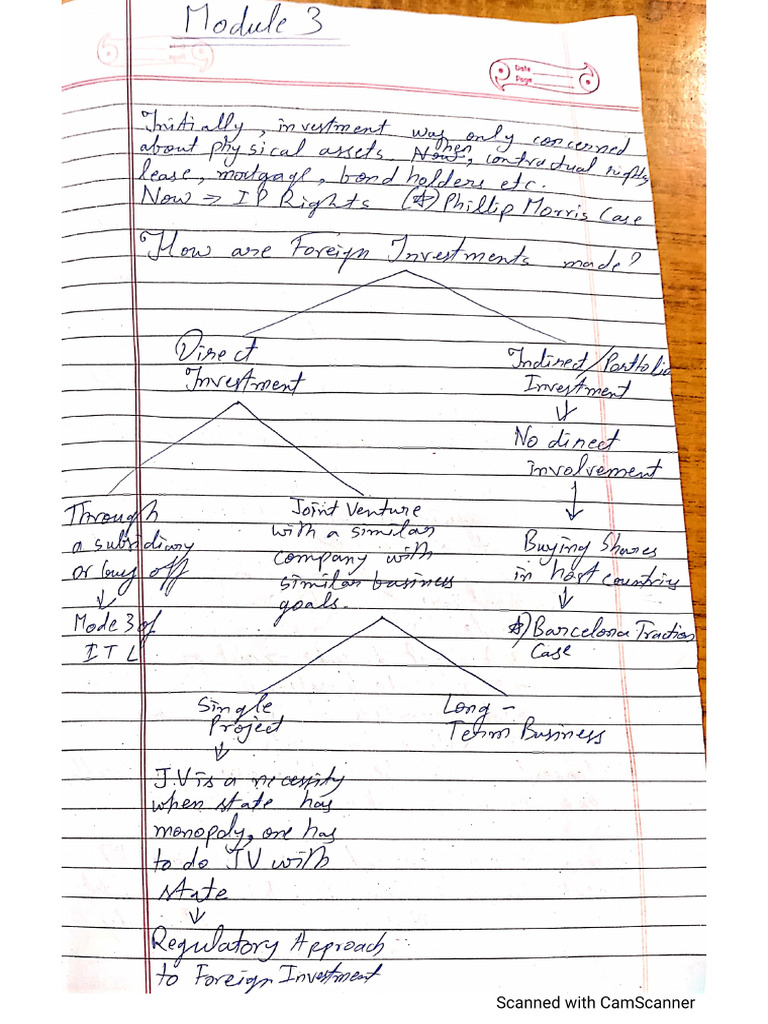 Module 3
Date
Page
Initially, investment was only concerned
about physical assets. Then, contractual rights,
lease, mortgage, bond holders etc.
Now ⇒ IP Rights (☆) Phillip Morris Case
How are Foreign Investments made?
Direct
Investment
Indirect/Portfolio
Investment
↓
No direct
involvement
↓
Buying Shares
in host countries
↓
☆) Barcelona Traction
Case
Through
a subsidiary
or buy off
↓
Mode 3 of
ITL
Joint Venture
with a similar
company with
similar business
goals.
Single
Project
↓
J.V is a necessity
when state has
monopoly, one has
to do JV with
state
↓
Regulatory Approach
to Foreign Investment
Long -
Term Business
Scanned with CamScanner